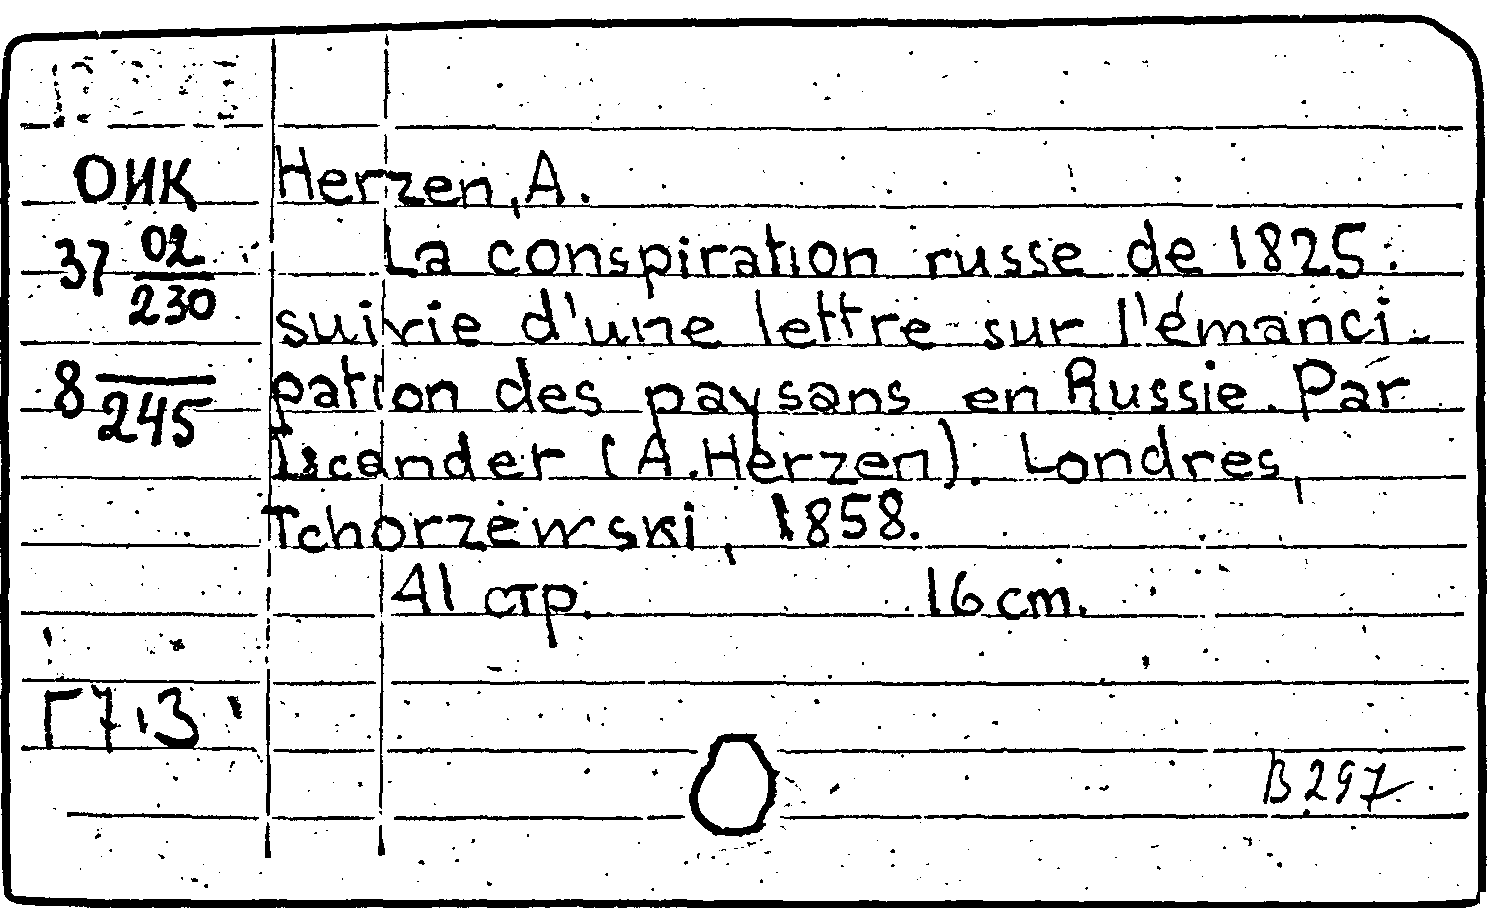 ОИК
37 02/230
8 —/245
Г7.3
Herzen, A.
La conspiration russe de 1825:
suivie d'une lettre sur l'émanci-
pation des paysans en Russie. Par
Iscander (A. Herzen). Londres,
Tchorzewski, 1858.
41 стр. 16 cm.
В 297